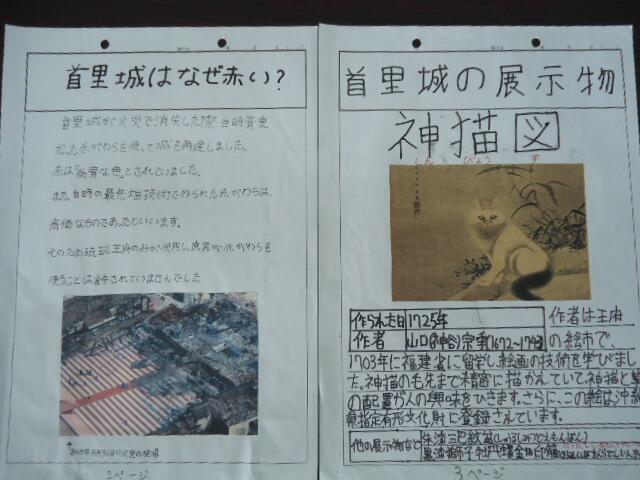 首里城はなぜ赤い?
首里城が火災で消失した際、当時貴重
だった赤がわらを使って城を再建しました。
赤は高貴な色とされていました。
また、当時の最先端技術で作られた赤がわらは、
高価なものであったといいます。
そのため琉球王府のみが使用し、庶民が赤がわらを
使うことは許されていませんでした
2ページ
首里城の展示物
神描図
しん びょう ず
作られた日 1725年
作者 山口(神谷)宗季(1672~1743)
作者は王府
の絵市で、
1703年に福建省に留学し絵画の技術を学びまし
た。神描の毛先まで精密に描かえていて、神描と
の配置が人の興味をひきます。さらに、この絵は沖縄
県指定有形文化財に登録されています。
他の展示物など
朱漆巴紋
黒漆獅子牡丹
3ページ